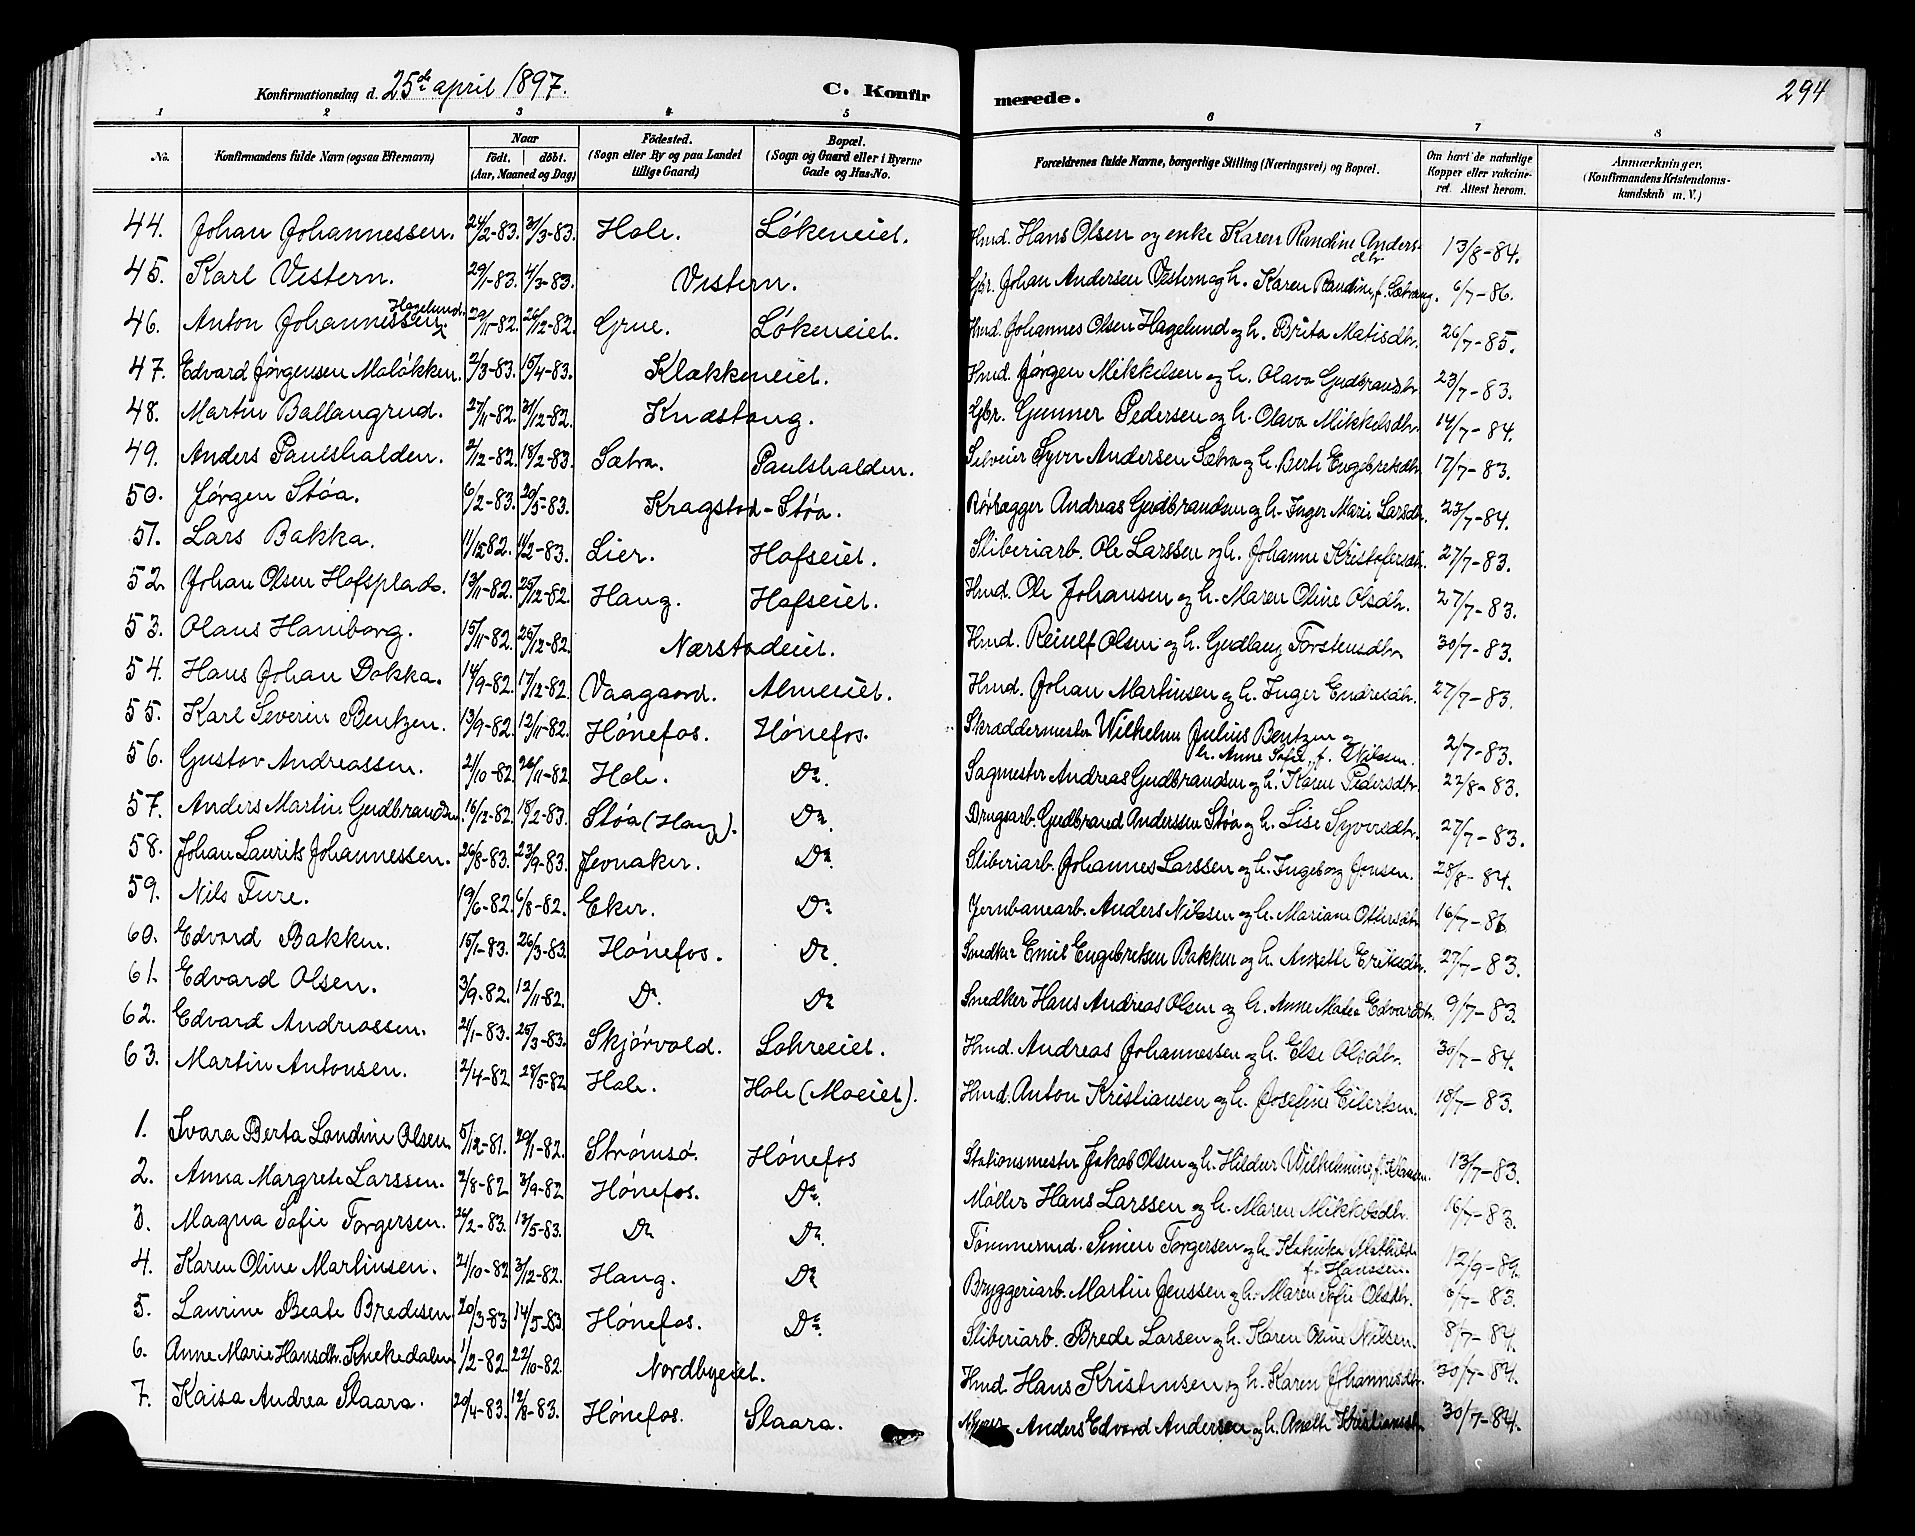 Konfirmationsdag d. 25de april 1897. C. Konfirmerede. 294
1 2 3 4 5 6 7 8
No. Konfirmandens fulde Navn (ogsaa Efternavn) Naar født. døbt. (Aar, Maaned og Dag) Födested. (Sogn eller By og paa Landet tillige Gaard) Bopæl. (Sogn og Gaard eller i Byerne Gade og Hus-No. Forældrenes fulde Navne, borgerlige Stilling (Næringsvei) og Bopæl. Om havt de naturlige Kopper eller vakcineret. Attest herom. Anmærkninger. (Konfirmandens Kristendomskundskab m. V.)
44. Johan Johannessen. 24/2-83. 31/3-83. Hole. Løkeneiet. Hmd. Hans Olsen og enke Karen Randine Andersdtr 13/8-84.
45. Karl Vestern. 29/1-83. 4/3-83. Vestern. Gbr. Johan Andersen Vestern og h. Karen Randine, f. Sætrang. 6/7-86.
46. Anton Johannessen Hagelund. 29/11-82. 26/12-82. Grue. Løkeneiet. Hmd. Johannes Olsen Hagelund og h. Brita Matisdtr. 26/7-85.
47. Edvard Jørgensen Maløkken. 2/3-83. 15/4-83. Klækkeneiet. Hmd. Jørgen Mikkelsen og h. Olava Gudbrandsdtr 23/7-83.
48. Martin Ballangrud. 27/11-82. 31/12-82. Knæstang. Gbr. Gunner Pedersen og h. Olava Mikkelsdtr. 14/7-84.
49. Anders Paulshalden. 2/12-82. 18/2-83. Sætra. Paulshalden. Selveier Syver Andersen Sætra og h. Berte Engebretsdtr 17/7-83.
50. Jørgen Støa. 6/2-83. 20/5-83. Kragstad-Støa. Rørlægger Andreas Gudbrandsen og h. Inger Marie Larsdtr. 23/7-84.
51. Lars Bakka. 11/12 82. 11/2-83. Lier. Hofseiet. Sliberiarb. Ole Larssen og h. Johanne Kristofersdtr 27/7-83.
52. Johan Olsen Hofsplads. 13/11-82. 25/12-82. Haug. Hofseiet. Hmd. Ole Johansen og h. Maren Oline Olsdtr. 27/7-83.
53. Olaus Hamborg. 15/11-82. 25/12-82. Nærstadeiet. Hmd. Reiulf Olsen og h. Gudlaug Torstensdtr 30/7-83.
54. Hans Johan Dokka. 14/9-82. 17/12-82. Vaagaard. Almeiet. Hmd. Johan Martinsen og h. Inger Endresdtr. 27/7-83.
55. Karl Severin Bentzen. 13/9-82. 12/11-82. Hønefos. Hønefos. Skræddermester Wilhelm Julius Bentzen og h. Anne Sofie, f. Nilsen. 2/7-83.
56. Gustav Andreassen. 2/10-82. 26/11-82 Hole. Do. Sagmester Andreas Gudbrandsen og h. Karen Pedersdtr. 22/8-83.
57. Anders Martin Gudbrandsen. 16/12-82. 18/2-83. Støa (Haug). Do. Brugsarb. Gudbrand Anderssen Støa og h. Lise Syversdtr. 27/7-83.
58. Johan Laurits Johannessen. 26/8-83. 23/9-83. Jevnaker. Do. Sliberiarb. Johannes Larssen og h. Ingeborg Jonsen. 28/8-84.
59. Nils Ture. 19/6-82. 6/8-82. Eker. Do Jernbanearb. Anders Nilssen og h. Mariane Ottersdtr 16/7-86
60. Edvard Bakken. 15/1-83. 26/3-83. Hønefos. Do. Snedker Emil Engebretsen Bakken og h. Anette Eriksdtr. 27/7-83.
61. Edvard Olsen. 3/9-82. 12/11-82. Do. Do Snedker Hans Andreas Olsen og h. Anne Matea Edvardsdtr. 9/7-83.
62. Edvard Andreassen. 21/1-83. 25/3-83. Skjørvold. Lohreeiet. Hmd. Andreas Johannessen og h. Else Olsdtr. 30/7-84.
63. Martin Antonsen. 2/4-82 28/5-82 Hole. Hole (Moeiet). Hmd. Anton Kristiansen og h. Josefine Eilertsen. 18/7-83.
1. Svara Berta Landine Olsen. 5/12-81. 29/1-82. Strømsø. Hønefos Stationsmester Jakob Olsen og h. Hildur Wilhelmine, f. Klausen. 13/7-83.
2. Anna Margrete Larssen. 2/8-82 3/9-82 Hønefos. Do. Møller Hans Larssen og h. Maren Mikkelsdtr. 16/7-83.
3. Magna Sofie Torgersen. 26/2-83. 13/5-83. Do Do. Tømmermd. Simen Torgersen og h. Katinka Mathilde f. Hanssen. 12/9-89.
4. Karen Oline Martinsen. 21/10-82 3/12-82. Haug. Do Bryggeriarb. Martin Jenssen og h. Maren Sofie Olsdtr. 6/7-83.
5. Laurine Beate Bredesen 20/3-83 14/5-83 Hønefos. Do. Sliberiarb. Brede Larsen og h. Karen Oline Nilsen. 8/7-84.
6. Anne Marie Hansdtr. Knekedalen 1/2-82. 22/10-82. Nordbyeiet. Hmd. Hans Kristensen og h. Karen Johannesdtr. 30/7-84.
7. Kaisa Andrea Slaara. 20/4-83. 12/8-83. Hønefos. Slaara. Anders Edvard Andersen og h. Anette Kristiansdtr. 30/7-84.